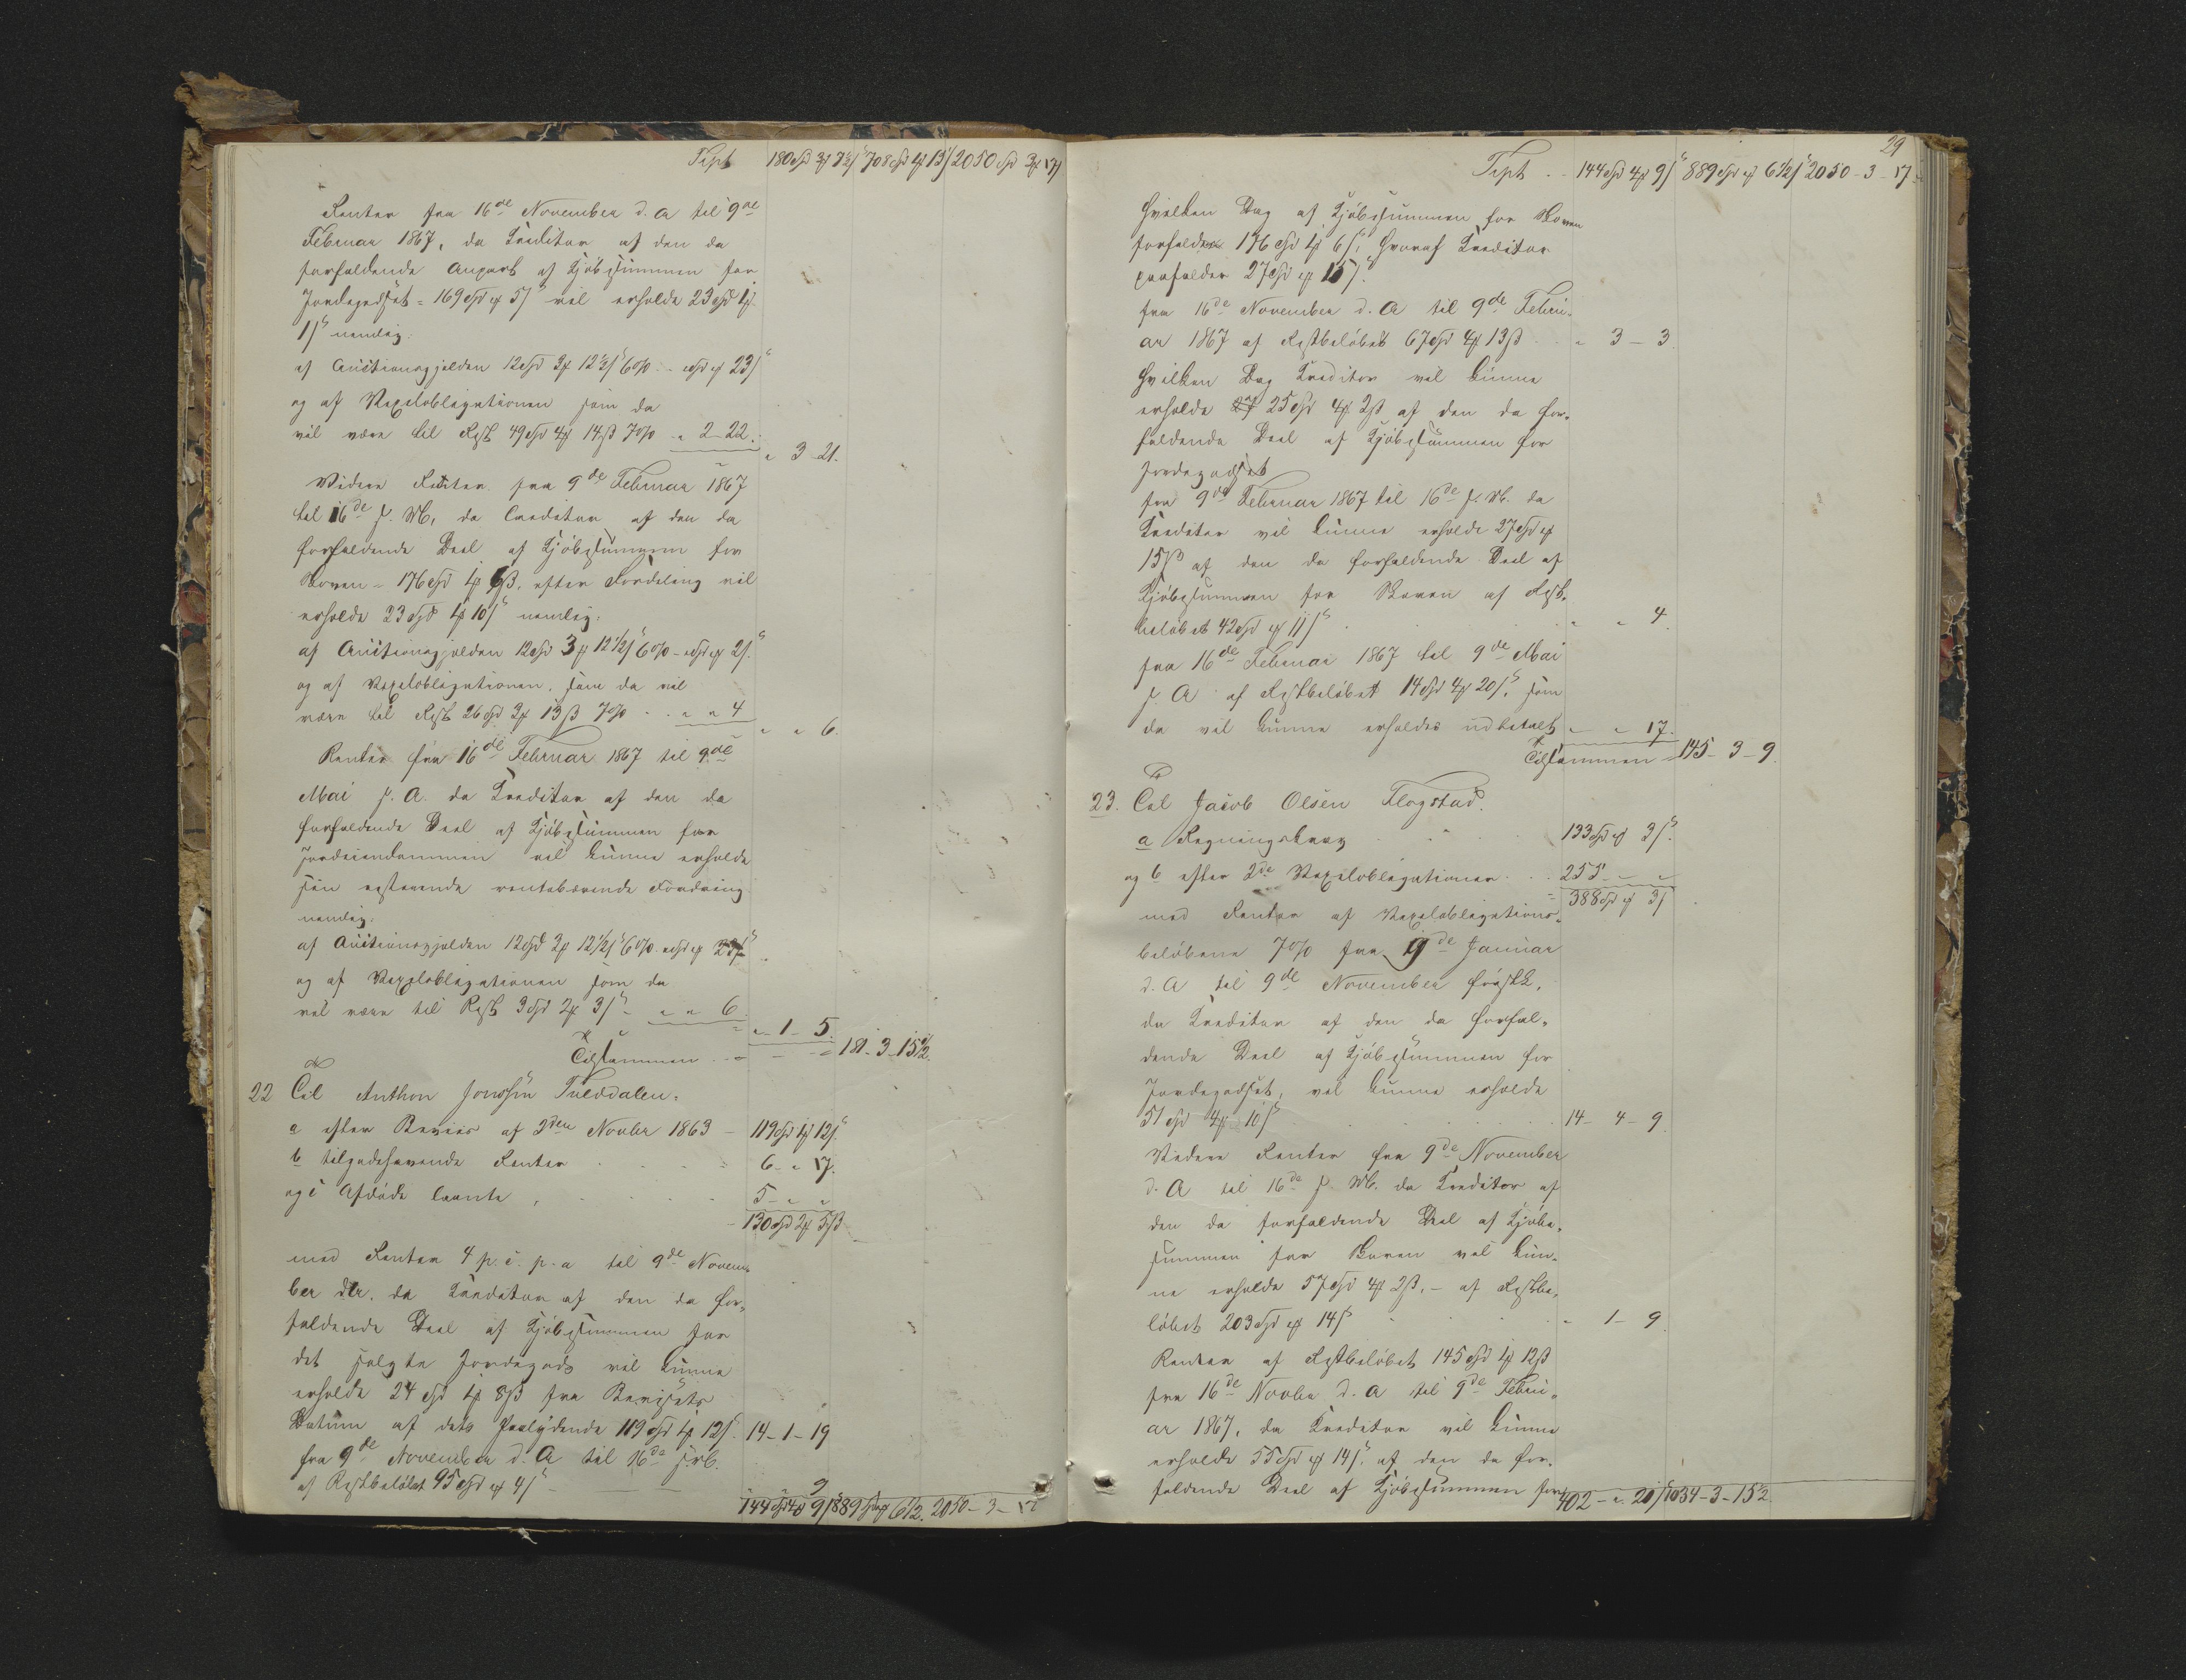 Tspt 180 Spd 3 ß 7½ ß 708 Spd 4 ß 13 ß 2050 Spd 3 ß 17 ß
Renter fra 16de November d. A til 9de
Februar 1867, da Creditor af den da
forfaldende Anpart af Kjøbesummen for
Jordegodset = 169 Spd ß 5 ß vil erholde 23 Spd 1 ß
1 ß nemlig:
af Auctionsgjelden 12 Spd 3 ß 12½ ß 6 % - Spd ß 23 ß
og af Vexelobligationen som da
vil være til Rest 49 Spd 4 ß 14 ß 7 % " 2 - 22.
" 3 - 21.
Videre Renter fra 9de Februar 1867
til 16de s. M., da Creditor af den da
forfaldende Deel af Kjøbesummen for
Skoven - 176 Spd 1 ß 6 ß, efter Fordeling vil
erholde 23 Spd 1 ß 10 ß nemlig:
af Auctionsgjelden 12 Spd 3 ß 12½ ß 6 % - Spd ß 2 ß
og af Vexelobligationen, som da vil
være til Rest 26 Spd 3 ß 13 ß 7 % . . " " 4
" " 6.
Renter fra 16de Februar 1867 til 9de
Mai s. A. da Creditor af den da
forfaldende Deel af Kjøbesummen for
Jordeiendommen vil kunne erholde
sin resterende rentebærende Fordring
nemlig:
af Auctionsgjelden 12 Spd 3 ß 12½ ß 6 % Spd ß 23 ß
og af Vexelobligationen som da
vil være til Rest 3 Spd 2 ß 3 ß - " " 6
" - 1 - 5.
Tilsammen - - - 181 - 3 - 15½.
22 Til Anthon Jonssøn Tulddalen:
a efter Beviis af 3den Novbr 1863 - 119 Spd 1 ß 12 ß
b tilgodehavende Renter . . . 6 - " 17.
og c Afdøde laante, . . . 5 - " "
- 130 Spd 2 ß 5 ß
med Renter 4 p. c. p. a til 9de Novem-
ber d. A. da Creditor af den da for-
faldende Deel af Kjøbesummen for
det solgte Jordegods vil kunne
erholde 24 Spd 1 ß 8 ß fra Bevisets
Datum af dets Paalydende 119 Spd 1 ß 12 ß. 14 - 1 - 19
fra 9de November d. A til 16de s. M.
af Restbeløbet 95 Spd ß 4 ß - 9
144 Spd 4 ß 9 ß 889 Spd ß 6½. 2050 - 3 - 17
29
Tspt . . 144 Spd 4 ß 9 ß 889 Spd ß 6½ ß 2050 - 3 - 17.
hvilken Dag af Kjøbesummen for Skoven
forfalder 176 Spd 1 ß 6 ß, hvoraf Creditor
paafalder 27 Spd ß 15 ß.
fra 16de November d. A til 9de Febru-
ar 1867 af Restbeløbet 67 Spd 4 ß 13 ß . . " 3 - 3.
hvilken Dag Creditor vil kunne
erholde 25 Spd 4 ß 2 ß af den da for-
faldende Deel af Kjøbesummen for
Jordegodset
fra 9de Februar 1867 til 16de s. M. da
Creditor vil kunne erholde 27 Spd ß
15 ß af den da forfaldende Deel af
Kjøbesummen for Skoven af Rest-
beløbet 42 Spd ß 11 ß . . . " " 4.
fra 16de Februar 1867 til 9de Mai
s. A af Restbeløbet 14 Spd 4 ß 20 ß, som
da vil kunne erholdes udbetalt " - " 17.
Tilsammen - 145 - 3 - 9.
23. Til Jacob Olsen Flogstad.
a Regningskrav . . . 133 Spd ß 3 ß.
og b efter 2de Vexelobligationer . . . 255 - " "
= 388 Spd ß 3 ß
med Renter af Vexelobligations-
beløbene 7 % fra 9de Januar
d. A til 9de November førstk.,
da Creditor af den da forfal-
dende Deel af Kjøbesummen for
Jordegodset, vil kunne erholde
51 Spd 4 ß 10 ß . . . 14 - 4 - 9
Videre Renter fra 9de November
d. A til 16de s. M. da Creditor af
den da forfaldende Deel af Kjøbe-
summen for Skoven vil kun-
ne erholde 57 Spd 4 ß 2 ß. - af Restbe-
løbet 203 Spd ß 14 ß . . . " 1 - 9.
Renter af Restbeløbet 145 Spd 1 ß 12 ß
fra 16de Novbr d. A til 9de Febru-
ar 1867, da Creditor vil kunne
erholde 55 Spd ß 14 ß. af den da for-
faldende Deel af Kjøbesummen for
402 - " 21 ß 1034 - 3 - 15½